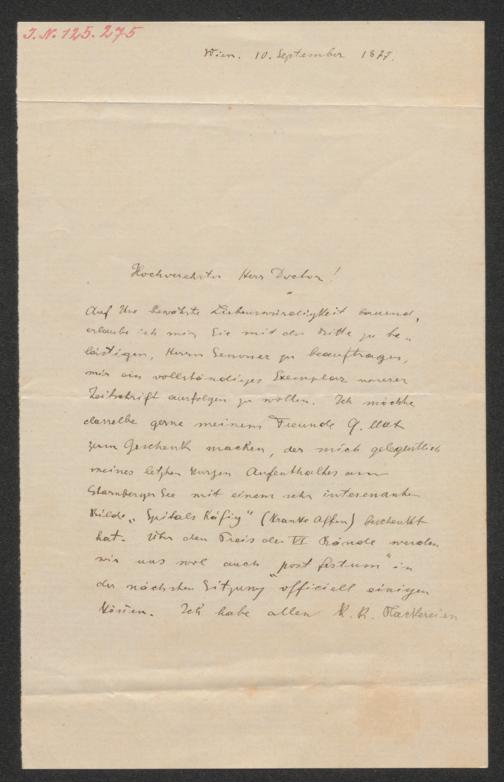 J. N. 125.275
Wien. 10. September 1877.
Hochverehrter Herr Doctor!
Auf Ihre bewährte Liebenswürdigkeit bauend,
erlaube ich mir Sie mit der Bitte zu be-
lästigen, Herrn zu beauftragen,
mir ein vollständiges Exemplar unserer
Zeitschrift ausfolgen zu wollen. Ich möchte
dasselbe gerne meinem Freunde G. Max
zum Geschenk machen, der mich gelegentlich
meines letzten kurzen Aufenthaltes am
Starnberger See mit einem sehr interessanten
Bilde „Spitals Käfig" (Kranke Affen) beschenkt
hat. Über den Preis der VI Bände werden
wir uns wol auch "post festum" in
der nächsten Sitzung officiell einigen
können. Ich habe allen K. K. Plackereien